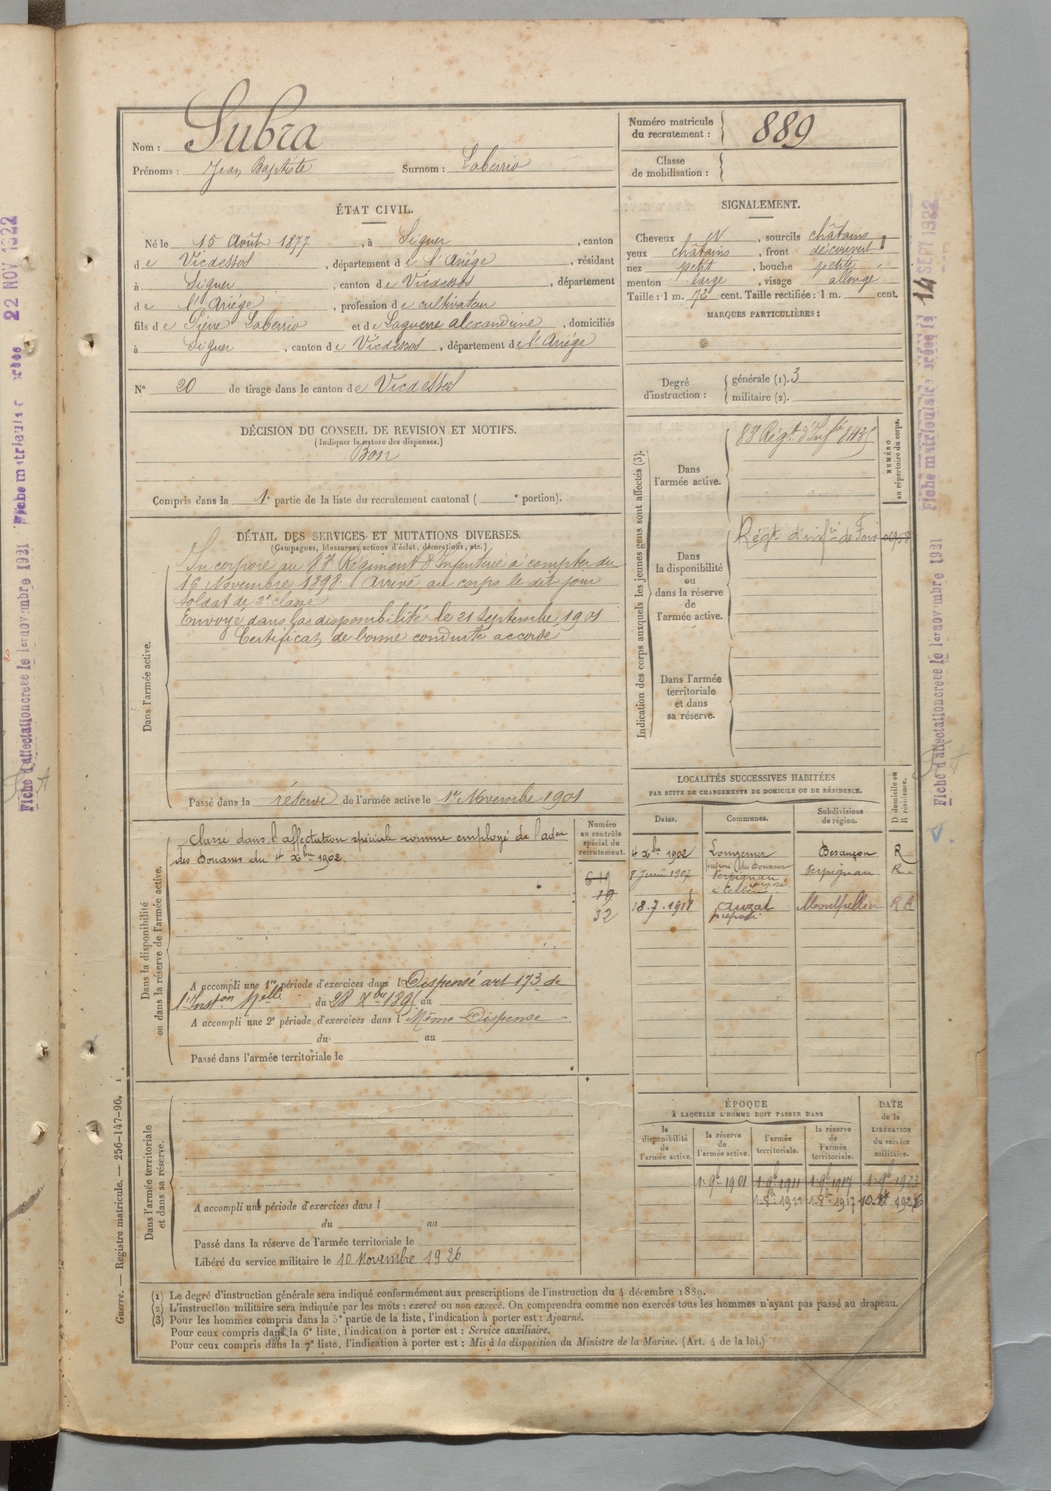 Nom : Subra
Prénoms : Jean Baptiste Surnom : Laberrio
Numéro matricule du recrutement : 889
Classe de mobilisation :
ÉTAT CIVIL.
Né le 15 Août 1877, à Siguer, canton
de Vicdessos, département de l'Ariége, résidant
à Siguer, canton de Vicdessos, département
de l'Ariége, profession de cultivateur
fils de Pierre Laberrio et de Laguerre alexandrine, domiciliés
à Siguer, canton de Vicdessos, département de l'Ariége
N° 20 de tirage dans le canton de Vicdessos
SIGNALEMENT.
Cheveux sourcils châtains
yeux châtains, front découvert
nez petit, bouche petite
menton large, visage allongé
Taille : 1 m. 72 cent. Taille rectifiée : 1 m. cent.
MARQUES PARTICULIÈRES :
Degré d'instruction : générale (1). 3
militaire (2).
DÉCISION DU CONSEIL DE REVISION ET MOTIFS.
(Indiquer la nature des dispenses.)
Bon
Compris dans la 1e partie de la liste du recrutement cantonal ( e portion).
DÉTAIL DES SERVICES ET MUTATIONS DIVERSES.
(Campagnes, blessures, actions d'éclat, décorations, etc.)
Dans l'armée active.
Incorporé au Régiment d'Infanterie à compter du
16 Novembre 1898. Arrivé au corps le dit jour
Soldat de 2e classe
Envoyé dans la disponibilité le 21 Septembre 1901
Certificat de bonne conduite accordé
Passé dans la réserve de l'armée active le 1er Novembre 1901
Indication des corps auxquels les jeunes gens sont affectés (3).
NUMÉRO au répertoire du corps.
Dans l'armée active.
Régt d'Infie
Dans la disponibilité ou dans la réserve de l'armée active.
Régt d'infie de Foix
Dans l'armée territoriale et dans sa réserve.
LOCALITÉS SUCCESSIVES HABITÉES
PAR SUITE DE CHANGEMENTS DE DOMICILE OU DE RÉSIDENCE.
Dates. Communes. Subdivisions de région. D domicile ou R résidence.
4 Xbre 1902 Besançon R
1907 Perpignan Perpignan R
18.7.1918 Auzat Montpellier R
préposé
Dans la disponibilité ou dans la réserve de l'armée active.
Numéro au contrôle spécial du recrutement.
Classé dans l'affectation spéciale comme employé de l'adon
des Douanes du 4 Xbre 1902
19
32
A accompli une 1re période d'exercices dans l Dispensé art 173 de
l'Inston Melle du 28 Xbre 189 au
A accompli une 2e période d'exercices dans l Même Dispense
du au
Passé dans l'armée territoriale le
ÉPOQUE
à LAQUELLE L'HOMME DOIT PASSER DANS
DATE de la LIBÉRATION du service militaire.
la disponibilité de l'armée active. la réserve de l'armée active. l'armée territoriale. la réserve de l'armée territoriale.
1 9bre 1901 1 9bre 1911 1 9bre 1917 1 9bre 1923
Dans l'armée territoriale et dans sa réserve.
A accompli une période d'exercices dans l
du au
Passé dans la réserve de l'armée territoriale le
Libéré du service militaire le 10 Novembre 1926
(1) Le degré d'instruction générale sera indiqué conformément aux prescriptions de l'instruction du 4 décembre 1889.
(2) L'instruction militaire sera indiquée par les mots : exercé ou non exercé. On comprendra comme non exercés tous les hommes n'ayant pas passé au drapeau.
(3) Pour les hommes compris dans la 5e partie de la liste, l'indication à porter est : Ajourné.
Pour ceux compris dans la 6e liste, l'indication à porter est : Service auxiliaire.
Pour ceux compris dans la 7e liste, l'indication à porter est : Mis à la disposition du Ministre de la Marine. (Art. 4 de la loi.)
Guerre. — Registre matricule. — 256-147-96.
Fiche d'affectation créée le 1er novembre 1921 Fiche matriculaire créée le 14 SEPT 1922
Fiche d'affectation créée le 1er novembre 1921 Fiche matriculaire créée 22 NOV 1922